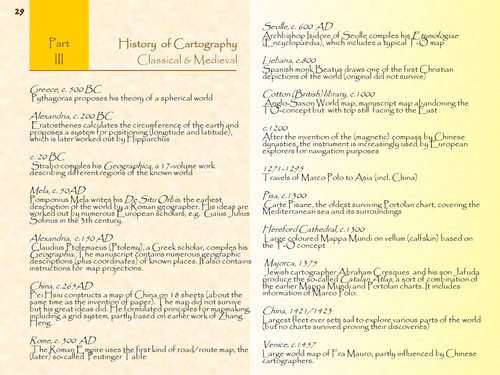 29
Part
III
History of Cartography
Classical & Medieval
Greece, c. 500 BC
Pythagoras proposes his theory of a spherical world
Alexandria, c. 200 BC
Eratosthenes calculates the circumference of the earth and
proposes a system for positioning (longitude and latitude),
which is later worked out by Hipparchus
c. 20 BC
Strabo compiles his Geographica, a 17-volume work
describing different regions of the known world
Mela, c. 50AD
Pomponius Mela writes his De Situ Orbis, the earliest
description of the world by a Roman geographer. His ideas are
worked out by numerous European scholars, e.g. Gaius Julius
Solinus in the 3th century.
Alexandria, c.150 AD
Claudius Ptolemaeus (Ptolemy), a Greek scholar, compiles his
Geographia. The manuscript contains numerous geographic
descriptions (plus coordinates) of known places. It also contains
instructions for map projections.
China, c.265AD
Pei Hsiu constructs a map of China on 18 sheets (about the
same time as the invention of paper). The map did not survive
but his great ideas did. He formulated principles for mapmaking,
including a grid system, partly based on earlier work of Zhang
Heng.
Rome, c. 300 AD
The Roman Empire uses the first kind of road/route map, the
(later) so-called Peutinger Table
Seville, c. 600 AD
Archbishop Isidore of Seville compiles his Etymologiae
(Encyclopaedia), which includes a typical T-O map
Liebana, c.800
Spanish monk Beatus draws one of the first Christian
depictions of the world (original did not survive)
Cotton (British) library, c.1000
Anglo-Saxon World map, manuscript map abandoning the
TO-concept but with top still facing to the East
c.1200
After the invention of the (magnetic) compass by Chinese
dynasties, the instrument is increasingly used by European
explorers for navigation purposes
1271-1295
Travels of Marco Polo to Asia (incl. China)
Pisa, c.1300
Carte Pisane, the oldest surviving Portolan chart, covering the
Mediterranean sea and its surroundings
Hereford Cathedral, c.1300
Large coloured Mappa Mundi on vellum (calfskin) based on
the T-O concept
Majorca, 1375
Jewish cartographer Abraham Cresques and his son Jafuda
produce the so-called Catalan Atlas, a sort of combination of
the earlier Mappa Mundi and Portolan charts. It includes
information of Marco Polo.
China, 1421/1423
Largest fleet ever sets sail to explore various parts of the world
(but no charts survived proving their discoveries)
Venice, c.1457
Large world map of Fra Mauro, partly influenced by Chinese
cartographers.